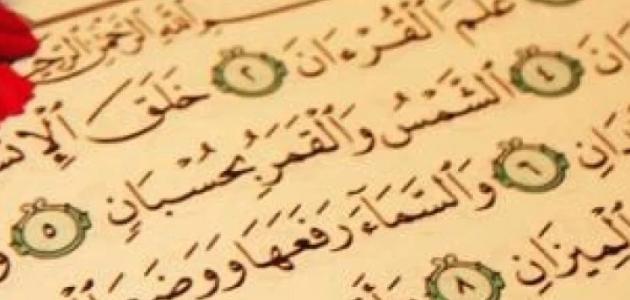 بِسْمِ ٱللَّهِ ٱلرَّحْمَٰنِ ٱلرَّحِيمِ
عَلَّمَ ٱلْقُرْءَانَ ٢ خَلَقَ ٱلْإِنسَ
ٱلشَّمْسُ وَٱلْقَمَرُ بِحُسْبَانٍ ٥
٤
٦ وَٱلسَّمَآءَ رَفَعَهَا وَوَضَعَ
ٱلْمِيزَانِ ٨